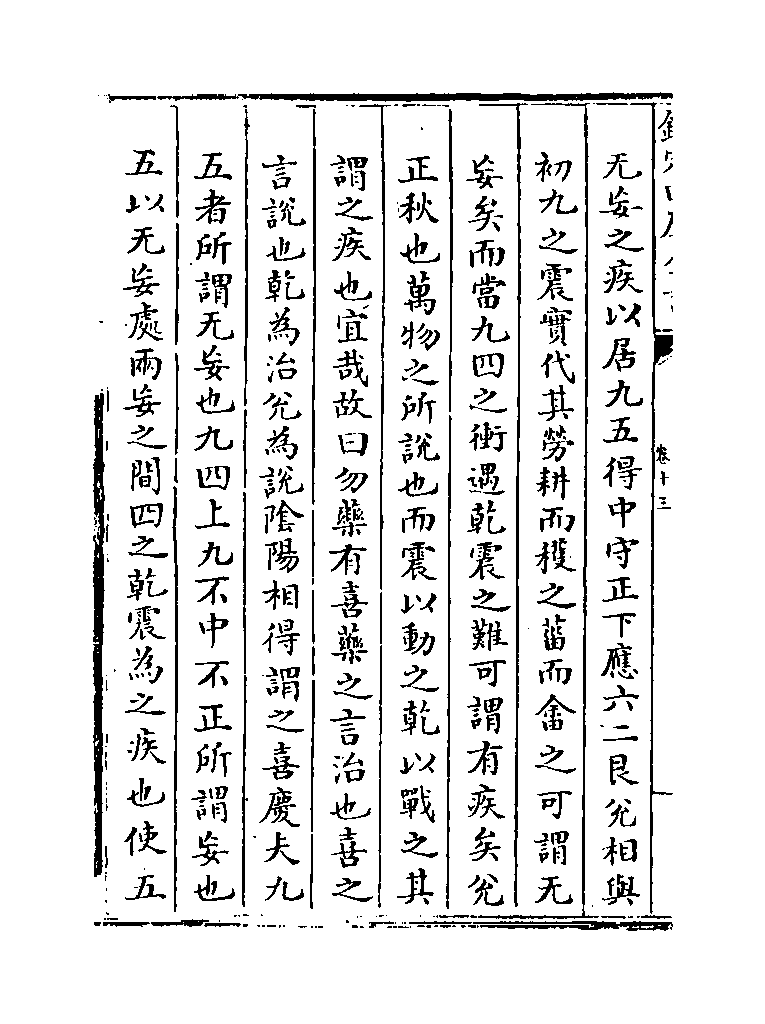 欽定四庫全書
卷十三
无妄之疾以居九五得中守正下應六二艮兊相與
初九之震實代其勞耕而穫之菑而畬之可謂无
妄矣而當九四之衝遇乾震之難可謂有疾矣兊
正秋也萬物之所說也而震以動之乾以戰之其
謂之疾也宜哉故曰勿藥有喜藥之言治也喜之
言說也乾為治兊為說陰陽相得謂之喜慶夫九
五者所謂无妄也九四上九不中不正所謂妄也
五以无妄處兩妄之間四之乾震為之疾也使五